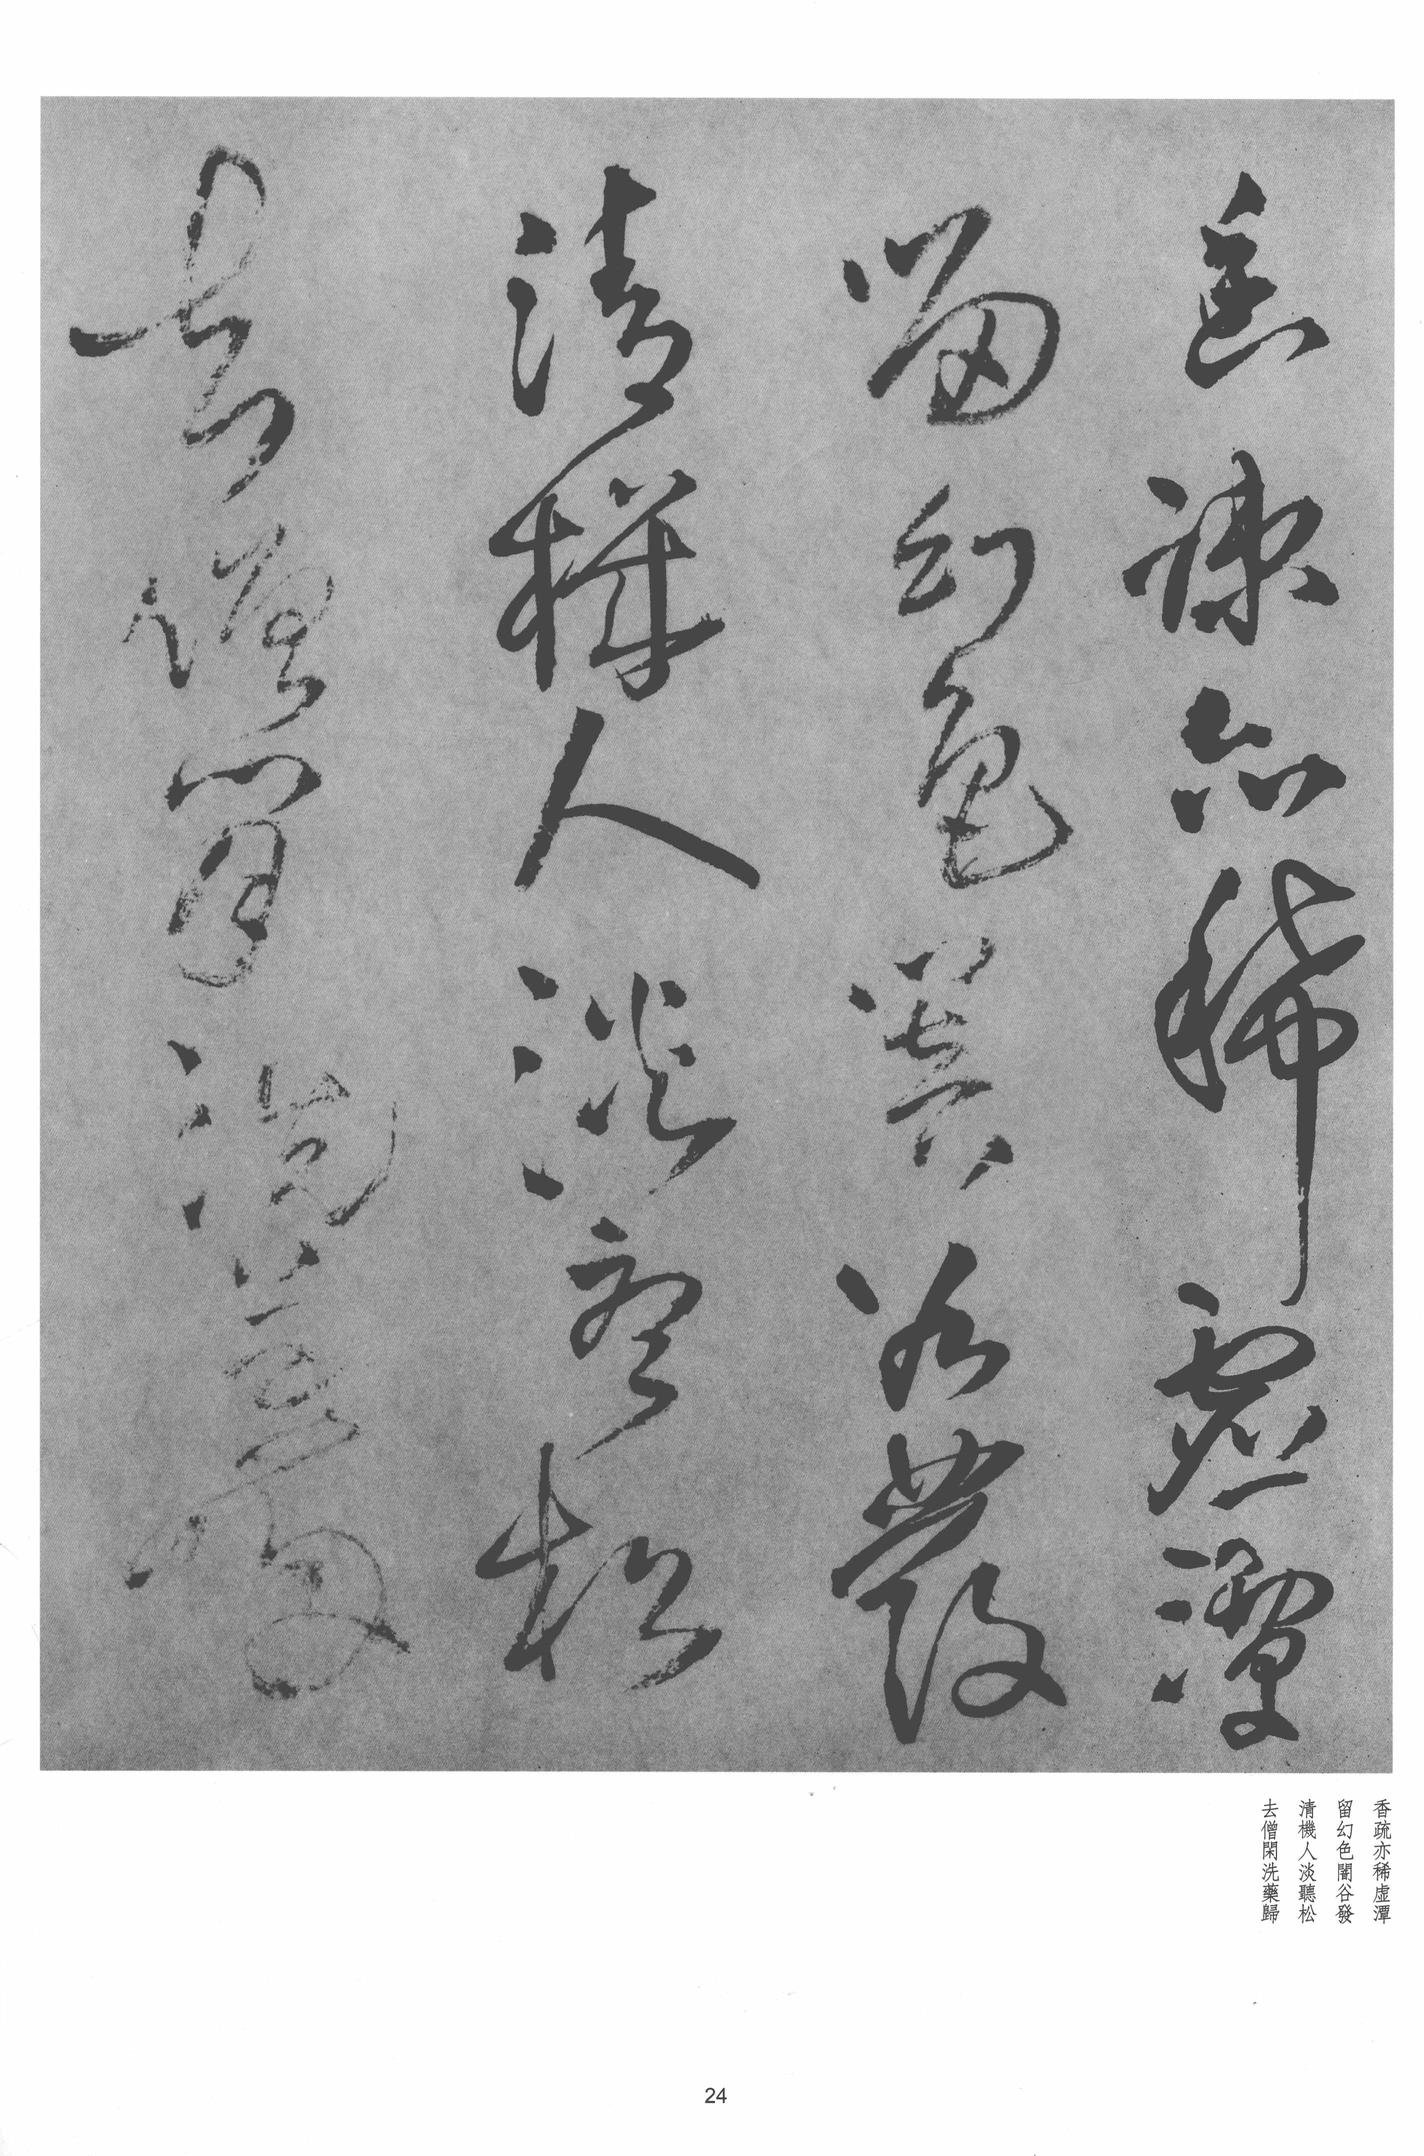 香疏亦稀虛潭
留幻色闇谷發
清機人淡聽松
去僧閑洗藥歸
香疏亦稀虛潭
留幻色闇谷發
清機人淡聽松
去僧閑洗藥歸
24